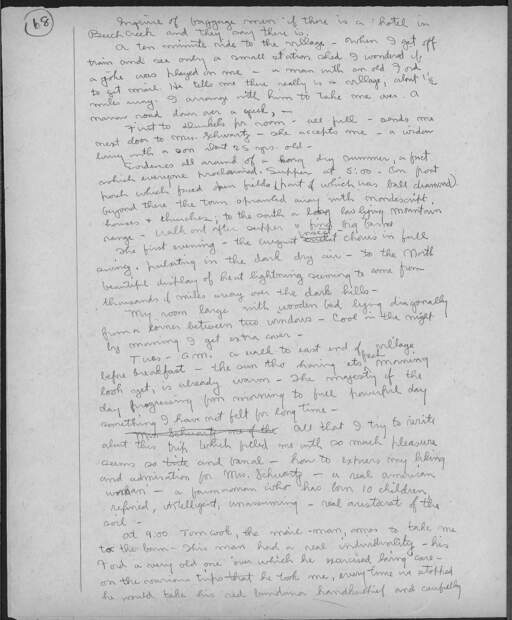 68
Inquire of baggage men if there is a hotel in
Beech Creek and they say there is.
A ten minute ride to the village - when I get off
train and see only a small station shed I wondered if
a joke was played on me - a man with an old Ford
to get mail. He tells me there really is a village, about 1½
miles away. I arrange with him to take me over. A
narrow road down over a creek, -
First to for room - all full - sends me
next door to Mrs. Schwartz - she accepts me - a widow
living with a son about 25 yrs. old -
Evidences all around of a long dry summer, a fact
which everyone proclaimed. Supper at 5:00. On front
porch which faced fields (part of which was ball diamond)
beyond there the town sprawled away with nondescript
houses & churches; to the south a long low lying mountain
range - walk out after supper & find big barns
The first evening - the August insect chorus in full
swing, pulsating in the dark dry air - to the North
beautiful display of heat lightning seeming to come from
thousands of miles away over the dark hills -
My room large with wooden bed lying diagonally
from a corner between two windows - Cool in the night
by morning I get extra cover -
Tues - A.M. a walk to east end of village
before breakfast - the sun tho having its morning
look yet, is already warm - The majesty of the
day progressing from morning to full powerful day
something I have not felt for long time -
Mrs. Schwartz one of the All that I try to write
about this trip which filled me with so much pleasure
seems so trite and banal - how to express my liking
and admiration for Mrs. Schwartz - a real american
woman - a farmwoman who has born 10 children,
refined, intelligent, unassuming - real aristocrat of the
soil -
At 9:00 Tom Cook, the mail-man, comes to take me
to the barn - This man had a real individuality - his
Ford a very old one over which he exercised loving care -
on the various trips that he took me, every time we stopped
he would take his red bandana handkerchief and carefully